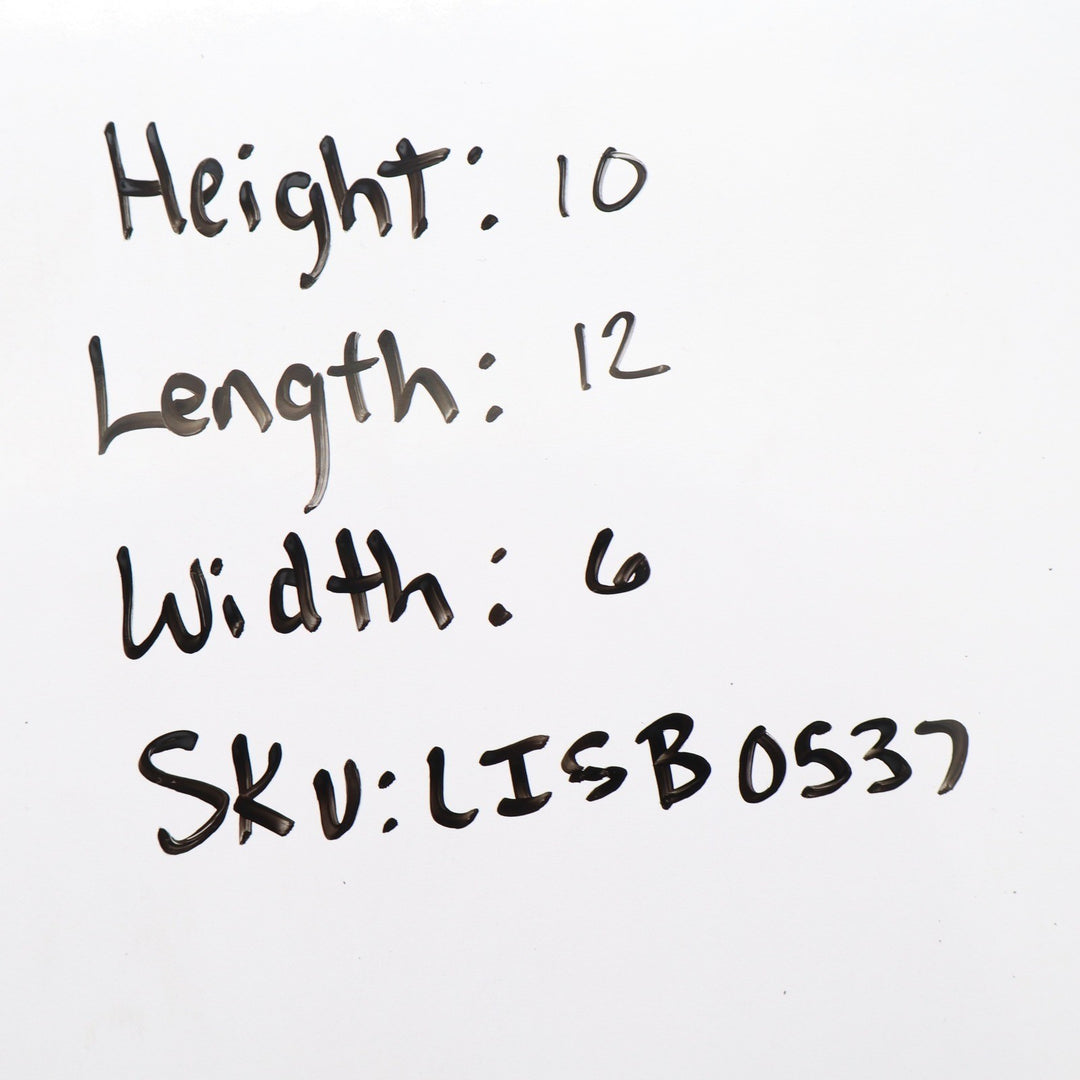 Height: 10
Length: 12
Width: 6
SKU: LISB0537